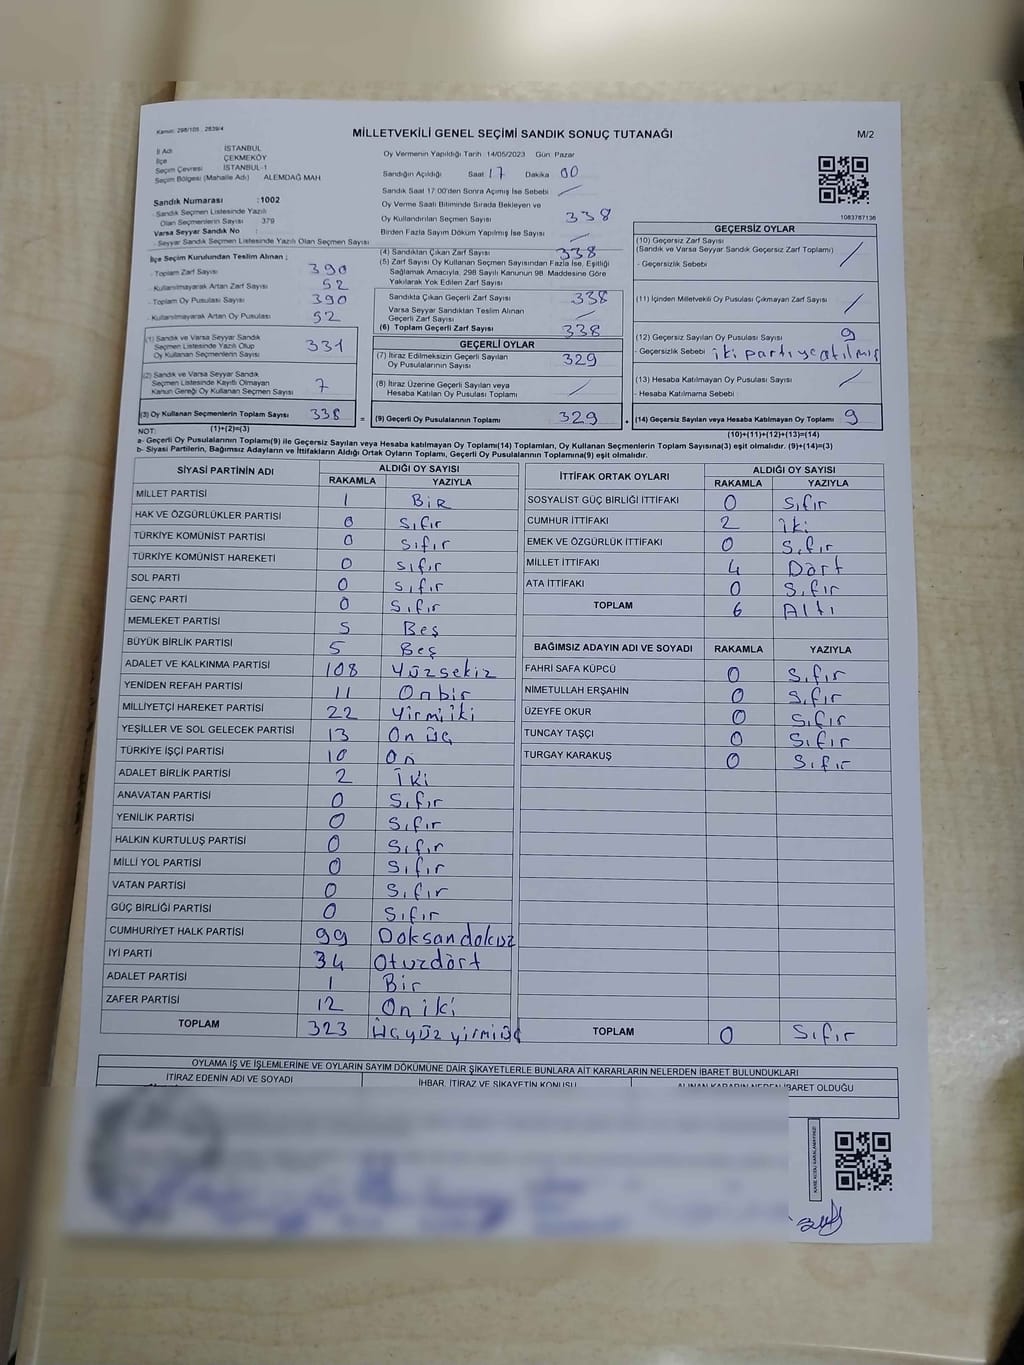 Kanun: 298/105 , 2839/4
MİLLETVEKİLİ GENEL SEÇİMİ SANDIK SONUÇ TUTANAĞI
M/2
İl Adı : İSTANBUL
İlçe : ÇEKMEKÖY
Seçim Çevresi : İSTANBUL-1
Seçim Bölgesi (Mahalle Adı) : ALEMDAĞ MAH
Sandık Numarası :1002
- Sandık Seçmen Listesinde Yazılı
Olan Seçmenlerin Sayısı : 379
Varsa Seyyar Sandık No :
- Seyyar Sandık Seçmen Listesinde Yazılı Olan Seçmen Sayısı
İlçe Seçim Kurulundan Teslim Alınan ;
- Toplam Zarf Sayısı 390
- Kullanılmayarak Artan Zarf Sayısı 52
- Toplam Oy Pusulası Sayısı 390
- Kullanılmayarak Artan Oy Pusulası 52
(1) Sandık ve Varsa Seyyar Sandık
Seçmen Listesinde Yazılı Olup
Oy Kullanan Seçmenlerin Sayısı 331
(2) Sandık ve Varsa Seyyar Sandık
Seçmen Listesinde Kayıtlı Olmayan
Kanun Gereği Oy Kullanan Seçmen Sayısı 7
(3) Oy Kullanan Seçmenlerin Toplam Sayısı 338
Oy Vermenin Yapıldığı Tarih 14/05/2023 Gün Pazar
Sandığın Açıldığı Saat 17 Dakika 00
Sandık Saat 17:00'den Sonra Açılmış İse Sebebi
Oy Verme Saati Bitiminde Sırada Bekleyen ve
Oy Kullandırılan Seçmen Sayısı 338
Birden Fazla Sayım Döküm Yapılmış İse Sayısı
(4) Sandıktan Çıkan Zarf Sayısı 338
(5) Zarf Sayısı Oy Kullanan Seçmen Sayısından Fazla İse, Eşitliği
Sağlamak Amacıyla, 298 Sayılı Kanunun 98. Maddesine Göre
Yakılarak Yok Edilen Zarf Sayısı
Sandıkta Çıkan Geçerli Zarf Sayısı 338
Varsa Seyyar Sandıktan Teslim Alınan
Geçerli Zarf Sayısı
(6) Toplam Geçerli Zarf Sayısı 338
GEÇERLİ OYLAR
(7) İtiraz Edilmeksizin Geçerli Sayılan
Oy Pusulalarının Sayısı 329
(8) İtiraz Üzerine Geçerli Sayılan veya
Hesaba Katılan Oy Pusulası Toplamı
= (9) Geçerli Oy Pusulalarının Toplamı 329
1083787136
GEÇERSİZ OYLAR
(10) Geçersiz Zarf Sayısı
(Sandık ve Varsa Seyyar Sandık Geçersiz Zarf Toplamı)
- Geçersizlik Sebebi
(11) İçinden Milletvekili Oy Pusulası Çıkmayan Zarf Sayısı
(12) Geçersiz Sayılan Oy Pusulası Sayısı 9
- Geçersizlik Sebebi iki partiye atılmış
(13) Hesaba Katılmayan Oy Pusulası Sayısı
- Hesaba Katılmama Sebebi
(14) Geçersiz Sayılan veya Hesaba Katılmayan Oy Toplamı 9
NOT: (1)+(2)=(3)
(10)+(11)+(12)+(13)=(14)
a- Geçerli Oy Pusulalarının Toplamı(9) ile Geçersiz Sayılan veya Hesaba katılmayan Oy Toplamı(14) Toplamları, Oy Kullanan Seçmenlerin Toplam Sayısına(3) eşit olmalıdır. (9)+(14)=(3)
b- Siyasi Partilerin, Bağımsız Adayların ve İttifakların Aldığı Ortak Oyların Toplamı, Geçerli Oy Pusulalarının Toplamına(9) eşit olmalıdır.
SİYASİ PARTİNİN ADI ALDIĞI OY SAYISI
RAKAMLA YAZIYLA
MİLLET PARTİSİ 1 BiR
HAK VE ÖZGÜRLÜKLER PARTİSİ 0 Sıfır
TÜRKİYE KOMÜNİST PARTİSİ 0 Sıfır
TÜRKİYE KOMÜNİST HAREKETİ 0 Sıfır
SOL PARTİ 0 Sıfır
GENÇ PARTİ 0 Sıfır
MEMLEKET PARTİSİ 5 Beş
BÜYÜK BİRLİK PARTİSİ 5 Beş
ADALET VE KALKINMA PARTİSİ 108 Yüzsekiz
YENİDEN REFAH PARTİSİ 11 Onbir
MİLLİYETÇİ HAREKET PARTİSİ 22 Yirmiiki
YEŞİLLER VE SOL GELECEK PARTİSİ 13 On üç
TÜRKİYE İŞÇİ PARTİSİ 10 On
ADALET BİRLİK PARTİSİ 2 İki
ANAVATAN PARTİSİ 0 Sıfır
YENİLİK PARTİSİ 0 Sıfır
HALKIN KURTULUŞ PARTİSİ 0 Sıfır
MİLLİ YOL PARTİSİ 0 Sıfır
VATAN PARTİSİ 0 Sıfır
GÜÇ BİRLİĞİ PARTİSİ 0 Sıfır
CUMHURİYET HALK PARTİSİ 99 Doksandokuz
İYİ PARTİ 34 Otuzdört
ADALET PARTİSİ 1 Bir
ZAFER PARTİSİ 12 On iki
TOPLAM 323 Üçyüz yirmiüç
İTTİFAK ORTAK OYLARI ALDIĞI OY SAYISI
RAKAMLA YAZIYLA
SOSYALİST GÜÇ BİRLİĞİ İTTİFAKI 0 Sıfır
CUMHUR İTTİFAKI 2 İki
EMEK VE ÖZGÜRLÜK İTTİFAKI 0 Sıfır
MİLLET İTTİFAKI 4 Dört
ATA İTTİFAKI 0 Sıfır
TOPLAM 6 Altı
BAĞIMSIZ ADAYIN ADI VE SOYADI RAKAMLA YAZIYLA
FAHRİ SAFA KÜPCÜ 0 Sıfır
NİMETULLAH ERŞAHİN 0 Sıfır
ÜZEYFE OKUR 0 Sıfır
TUNCAY TAŞÇI 0 Sıfır
TURGAY KARAKUŞ 0 Sıfır
TOPLAM 0 Sıfır
OYLAMA İŞ VE İŞLEMLERİNE VE OYLARIN SAYIM DÖKÜMÜNE DAİR ŞİKAYETLERLE BUNLARA AİT KARARLARIN NELERDEN İBARET BULUNDUKLARI
İTİRAZ EDENİN ADI VE SOYADI
İHBAR, İTİRAZ VE ŞİKAYETİN KONUSU
ALINAN KARARIN NEDEN İBARET OLDUĞU